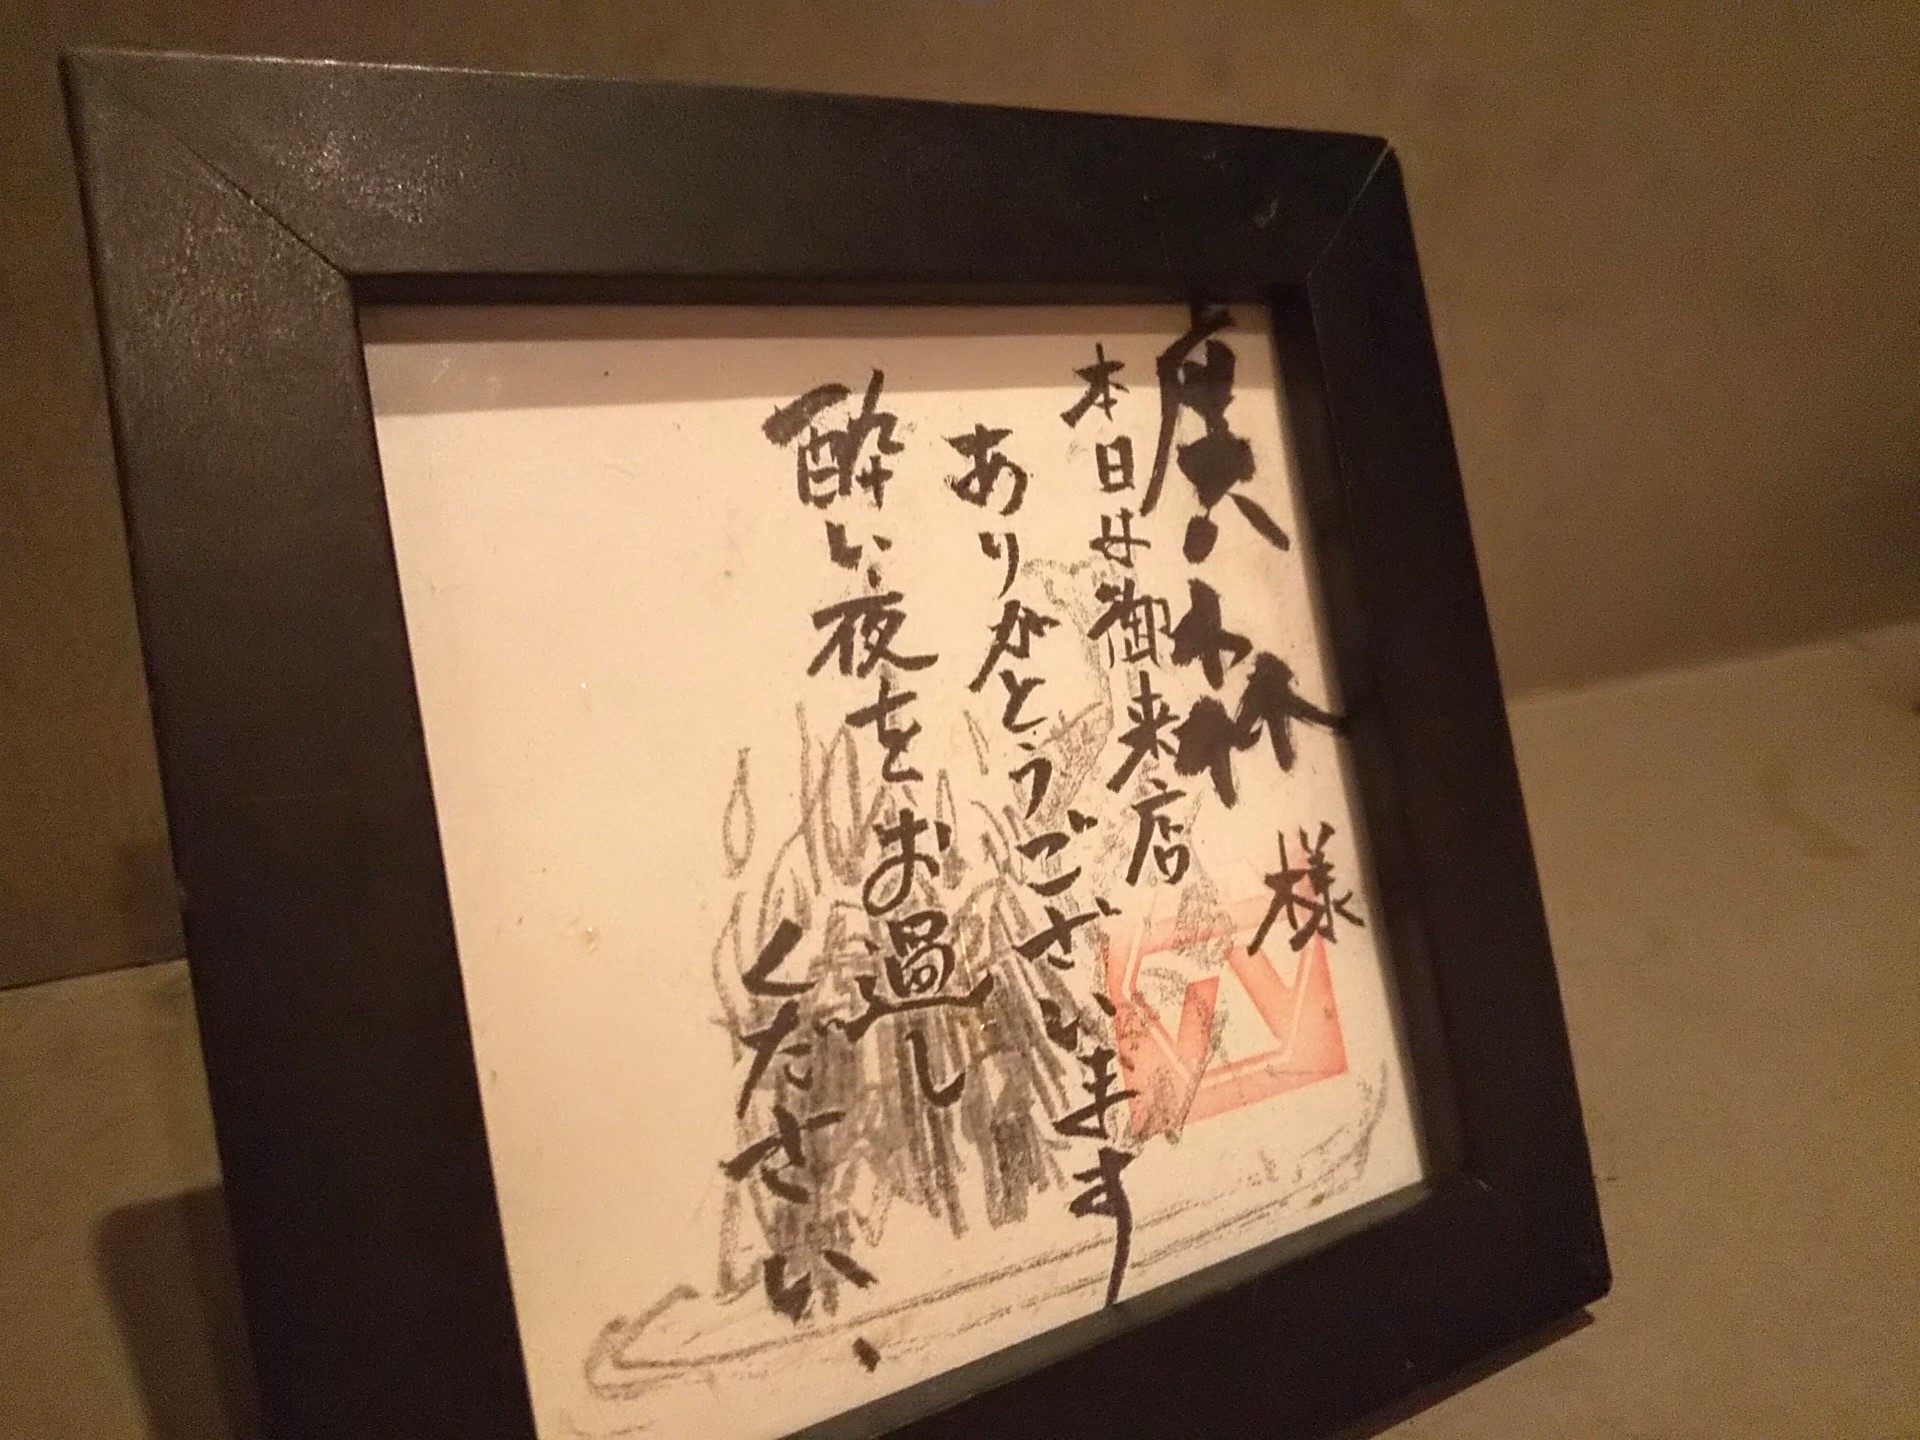 廣森様
本日は御来店
ありがとうございます
酔い夜をお過し
ください、